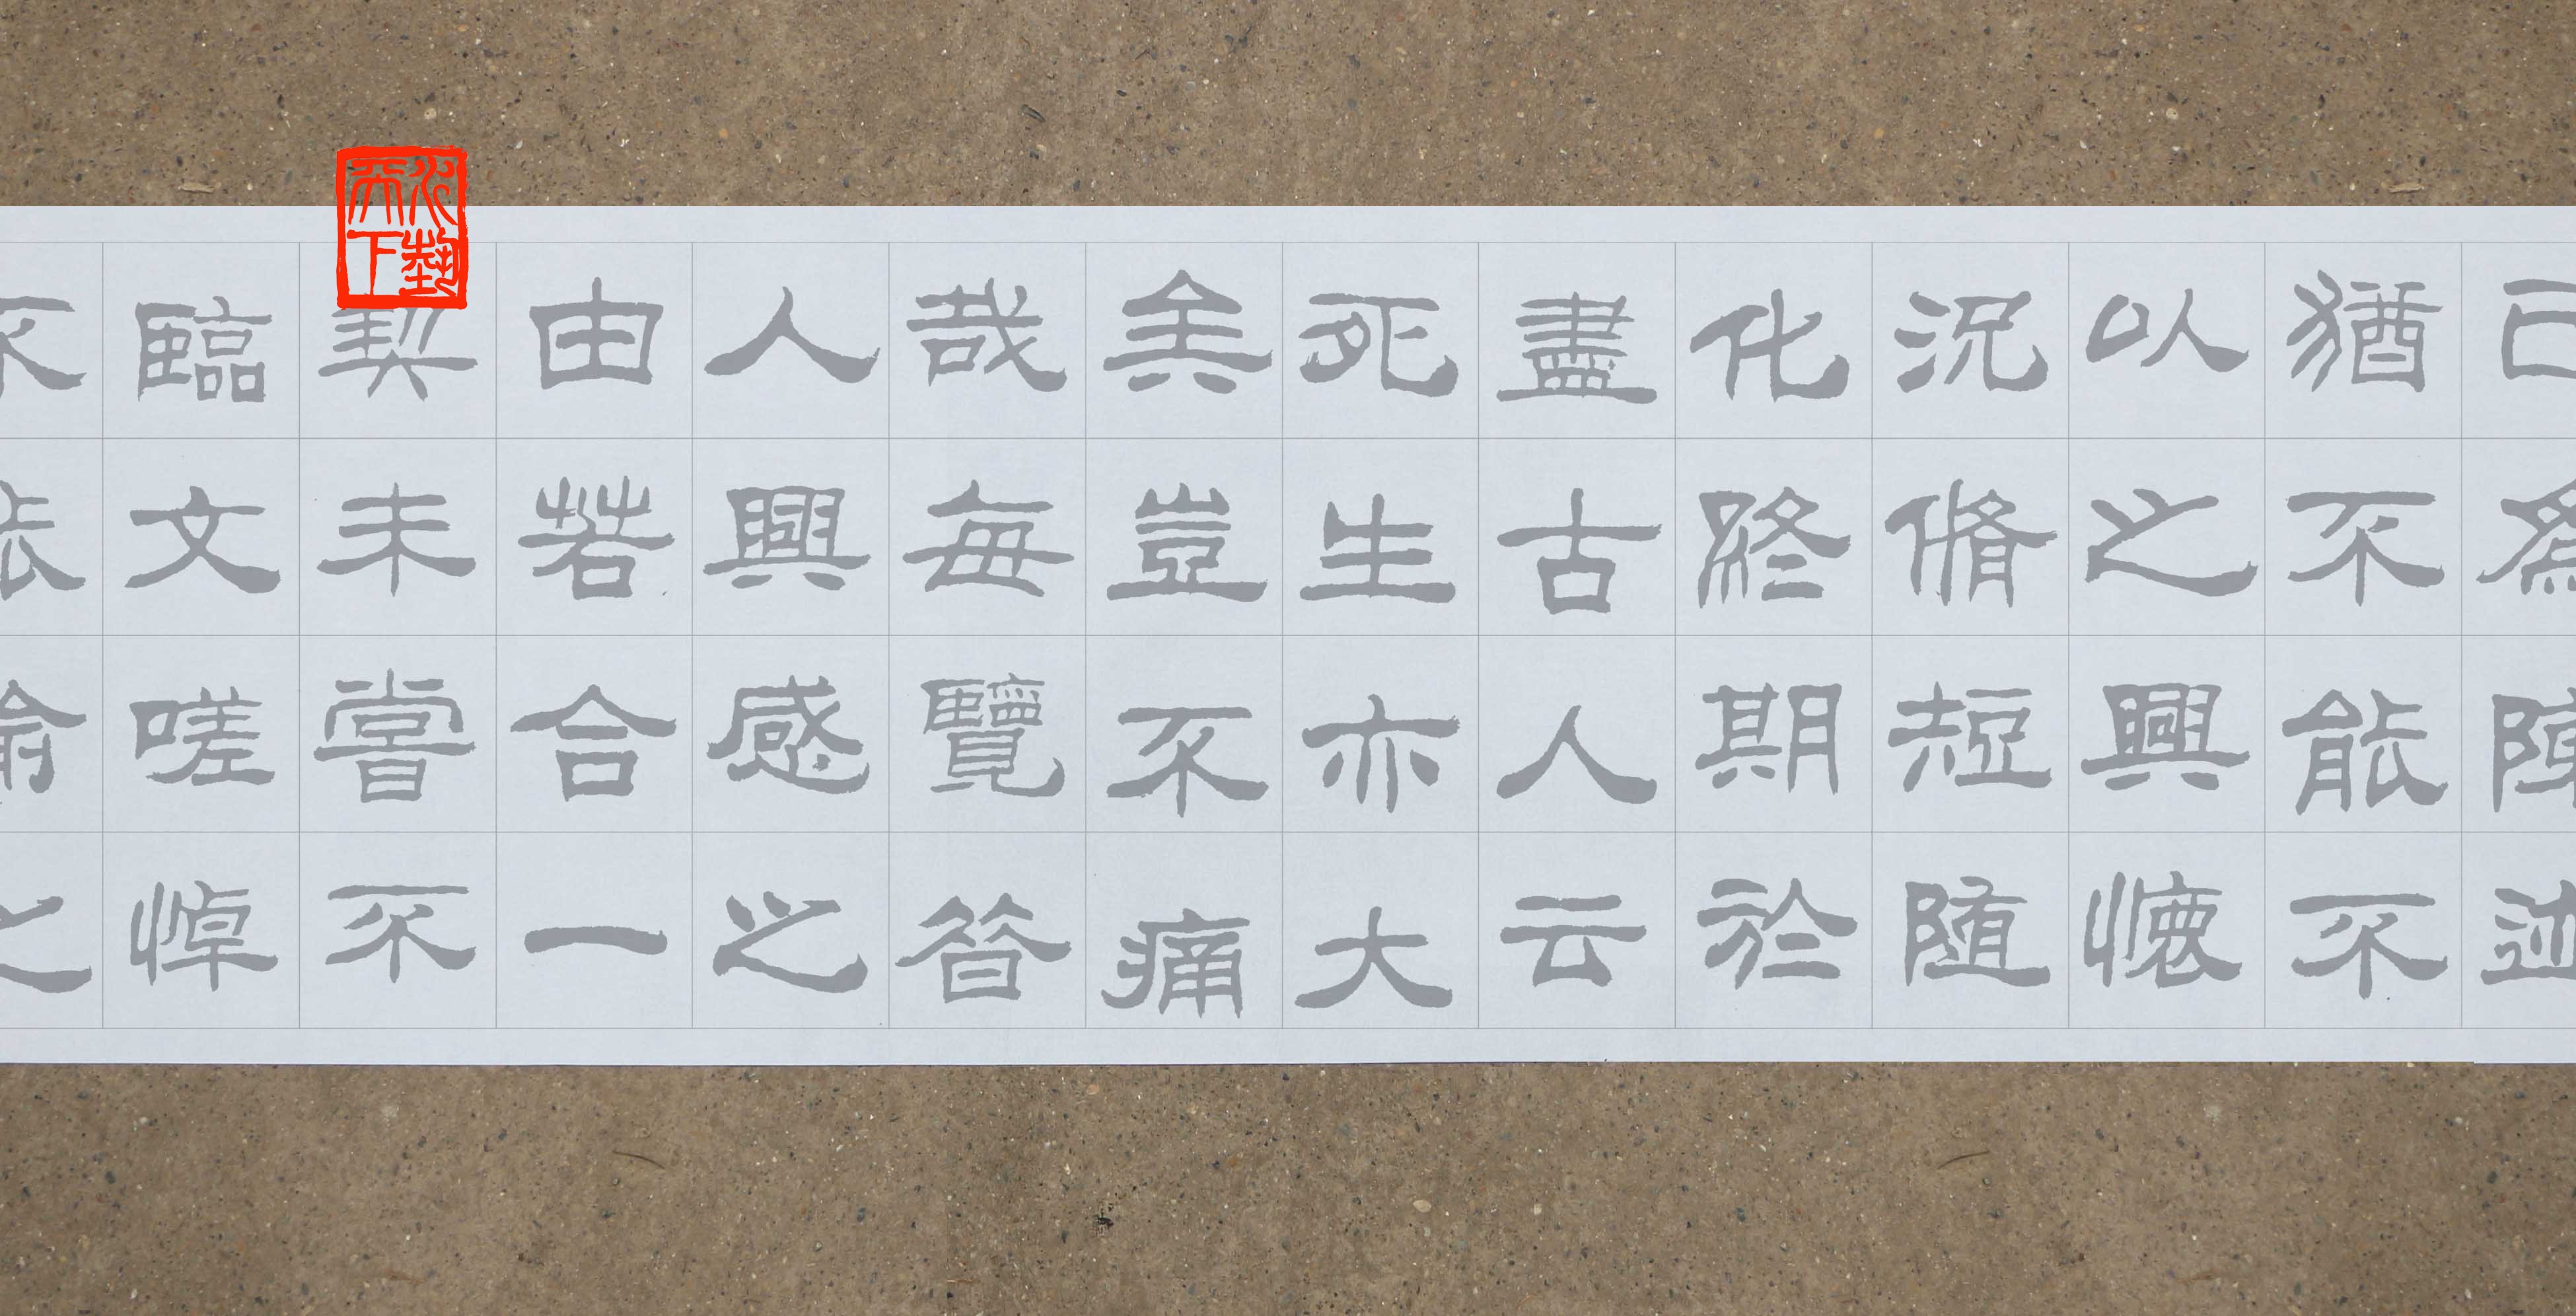 已為陳迹
猶不能不
以之興懷
況脩短随
化終期於
盡古人云
死生亦大
矣豈不痛
哉每覽昔
人興感之
由若合一
契未嘗不
臨文嗟悼
不能喻之
天下